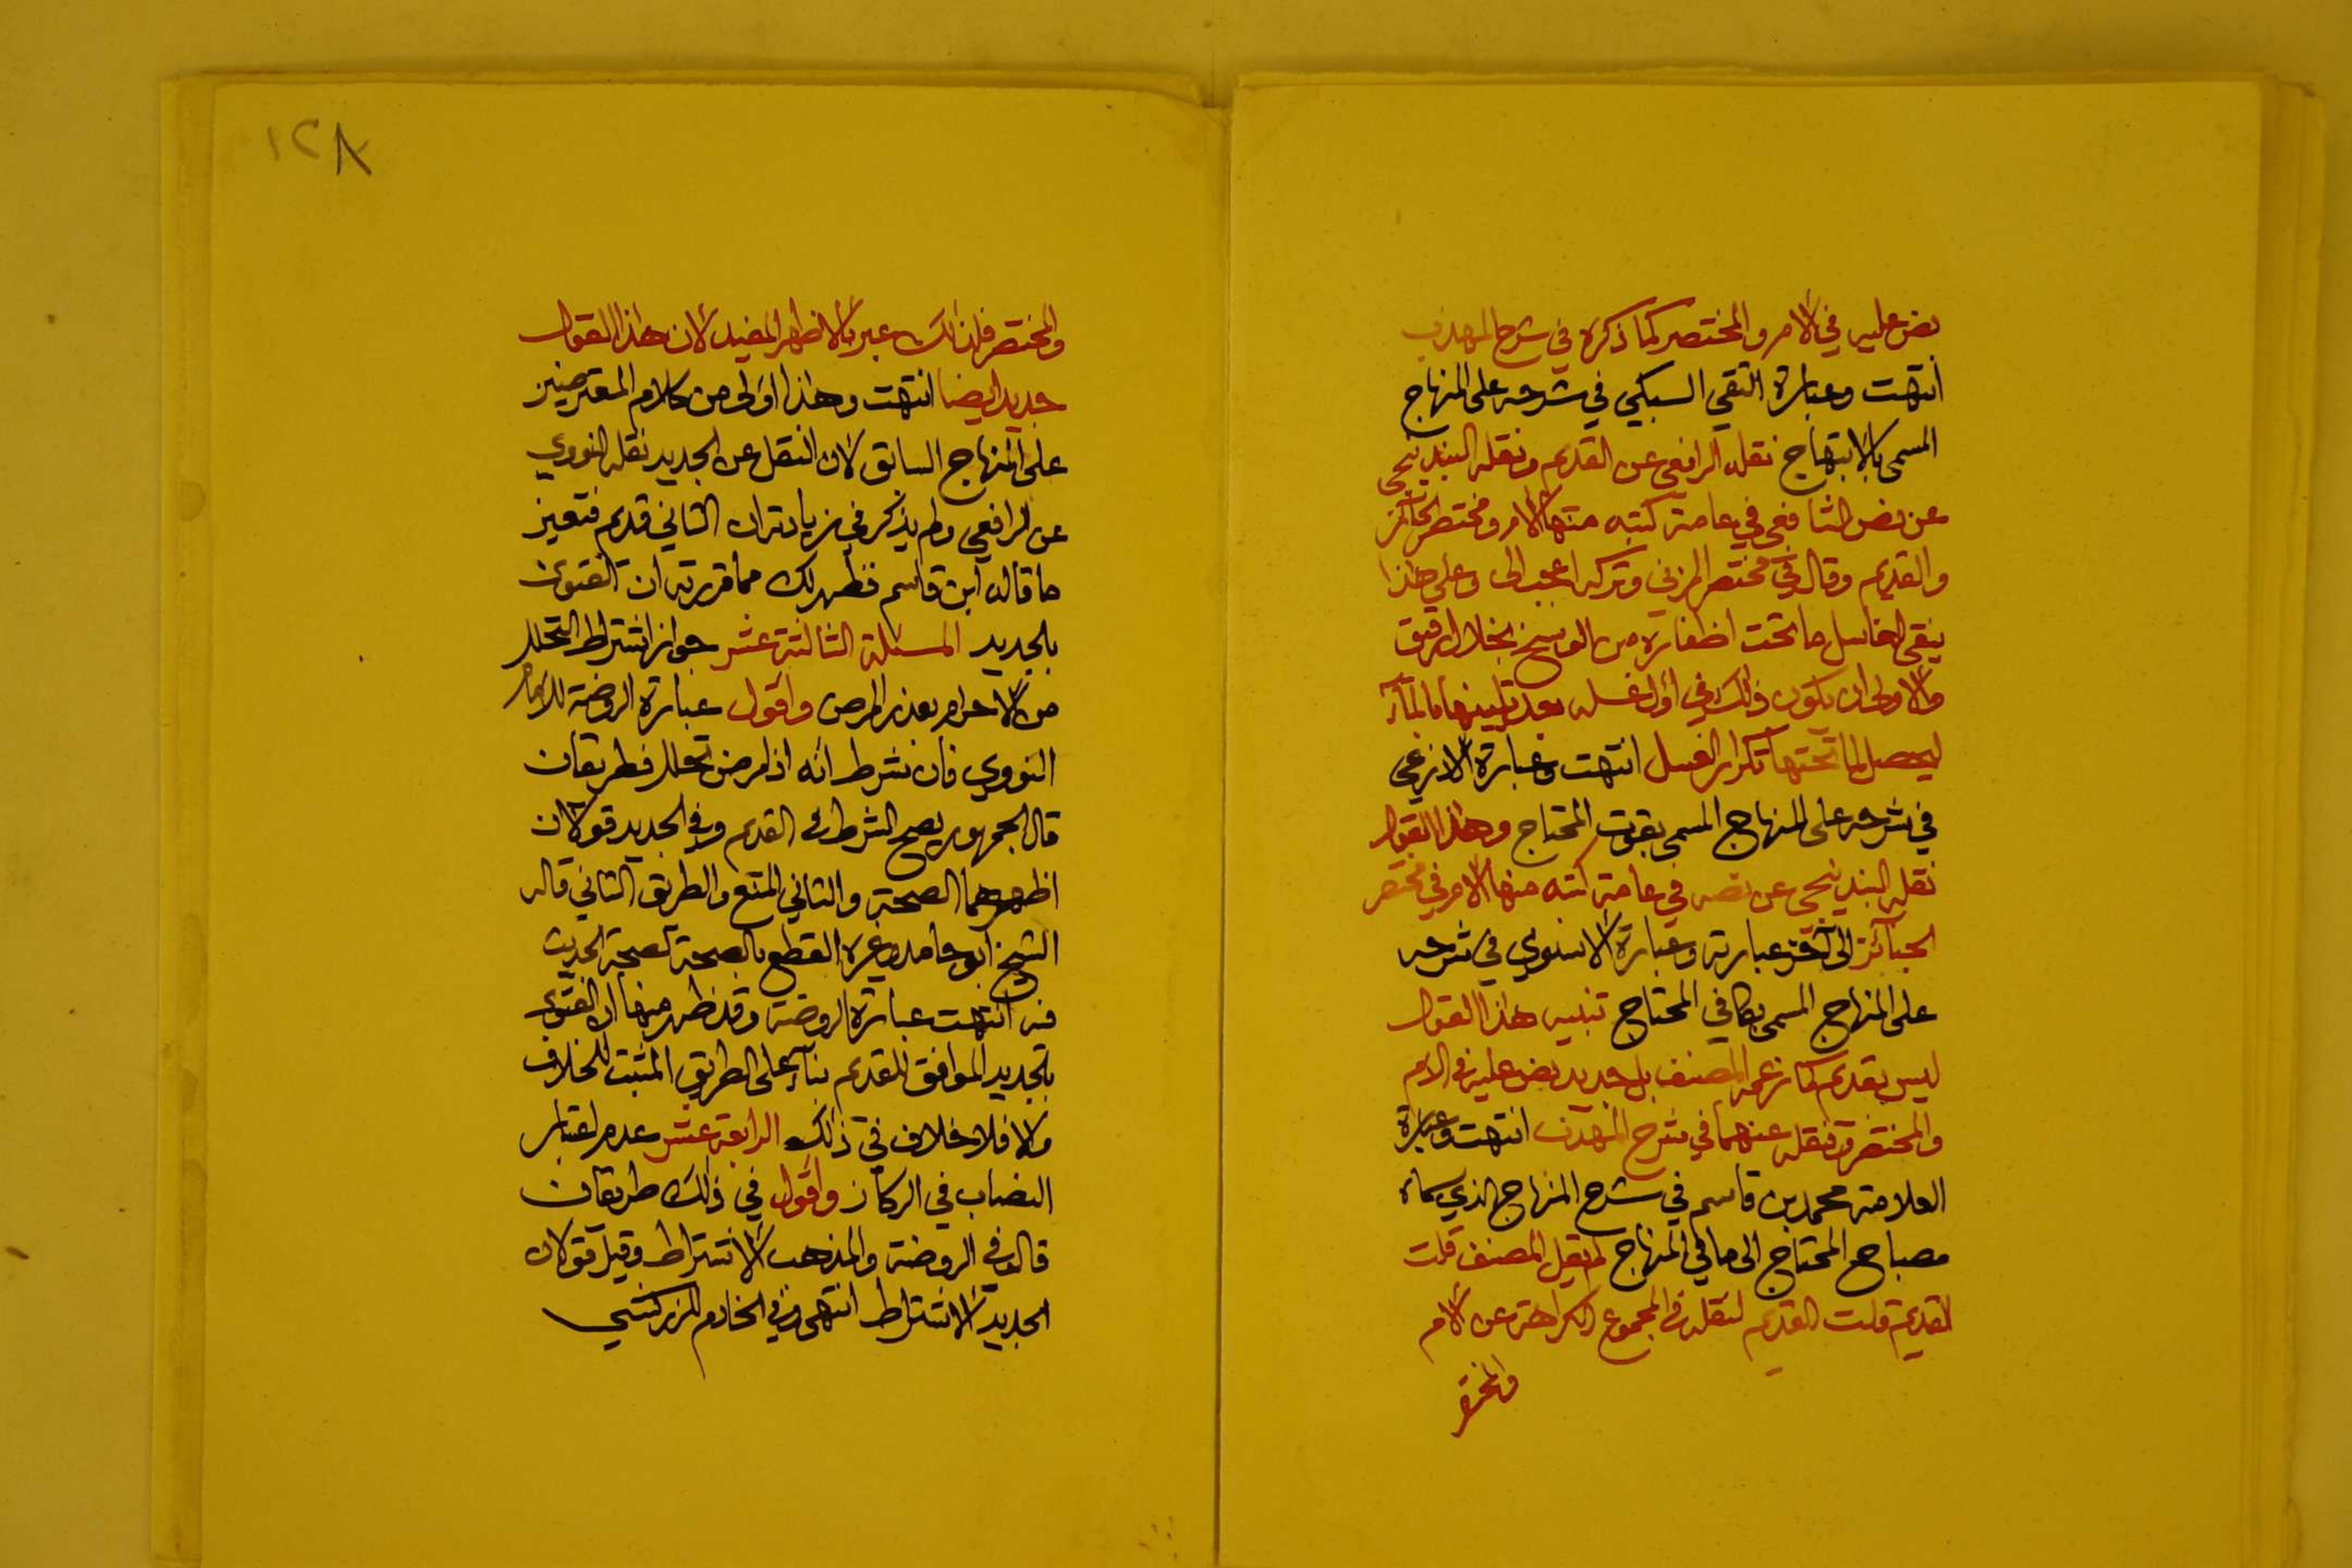 نص عليه في الام والمختصر كما ذكره في شرح المهذب
انتهت وعبارة التقي السبكي في شرحه على المنهاج
المسمى بالابتهاج نقله الرافعي عن القديم ونقله البندنيجي
عن نص الشافعي في عامة كتبه منها الام ومختصر الجنائز
والقديم وقال في مختصر المزني وتركه اعجب الى وعلى هذا
ينقى الغاسل ما تحت اظفاره من الوسخ بخلال رقيق
والاولى ان يكون ذلك في اول غسله بعد تليينها بالمآء
ليحصل لما تحتها تكرار الغسل انتهت وعبارة الاذرعي
في شرحه على المنهاج المسمى بقوت المحتاج وهذا القول
نقله البندنيجي عن نصه في عامة كتبه منها الام وفي مختصر
الجنآئز الى آخر عبارته وعبارة الاسنوي في شرحه
على المنهاج المسمى بكافي المحتاج تنبيه هذا القول
ليس بقديم كما زعمه المصنف بل جديد نص عليه في الام
والمختصر ونقله عنهما في شرح المهذب انتهت وعبارة
العلامة محمد بن قاسم في شرح المنهاج الذي سماه
مصباح المحتاج الى ما في المنهاج لم يقل المصنف قلت
القديم قلت القديم لنقله في المجموع الكراهة عن الام
والمختصر
١٢٨
والمختصر فلذلك عبر بالاظهر المفيد لان هذا القول
جديد ايضا انتهت وهذا اولى من كلام المعترضين
على المنهاج السابق لان النقل عن الجديد نقله النووي
عن الرافعي ولم يذكر في زيادته ان الثاني قديم فتعين
ما قاله ابن قاسم فظهر لك مما قررته ان الفتوى
بالجديد المسئلة الثالثة عشر جواز اشتراط التحلل
من الاحرام بعذر المرض واقول عبارة الروضة للامام
النووي فان شرط انه اذا مرض تحلل فطريقان
قال الجمهور يصح الشرط في القديم وفي الجديد قولان
اظهرهما الصحة والثاني المنع والطريق الثاني قاله
الشيخ ابو حامد وغيره القطع بالصحة لصحة الحديث
فيه انتهت عبارة الروضة وقد ظهر منها ان الفتوى
بالجديد الموافق للقديم بنآء على الطريق المثبت للخلاف
والا فلا خلاف في ذلك الرابعة عشر عدم اعتبار
النصاب في الركاز واقول في ذلك طريقان
قال في الروضة والمذهب الاشتراط وقيل قولان
الجديد الاشتراط انتهى وفي الخادم للزركشي